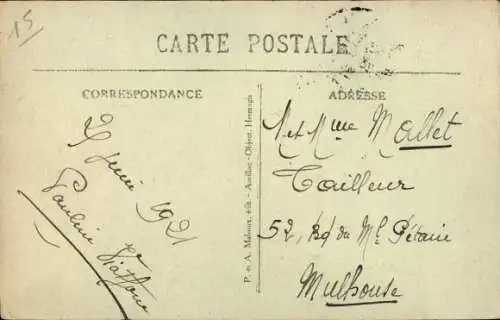 15
CARTE POSTALE
CORRESPONDANCE
ADRESSE
P. et A. Malroux, édit. - Aurillac - Object. Hermagis
Juin 1921
Pauline
M et Mme Mallet
Tailleur
52, Bd du Ml Pétain
Mulhouse